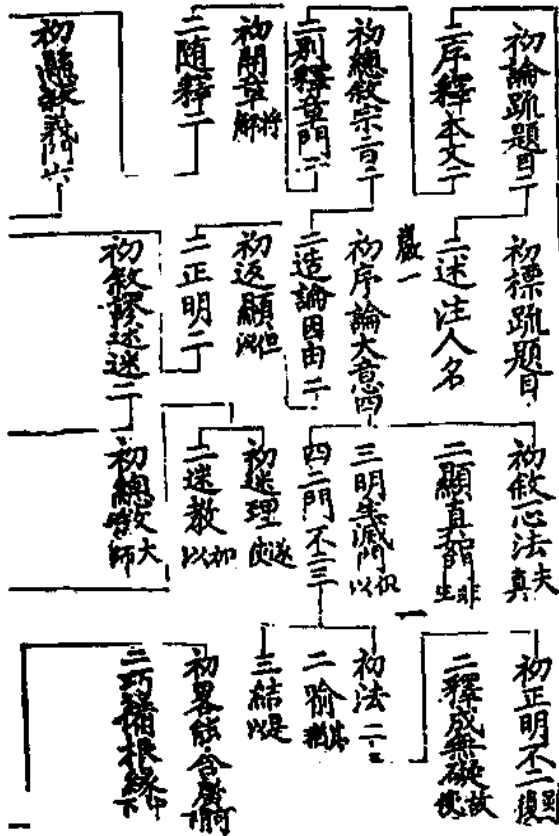 初論疏題目二
二序釋本文二
初總敘宗旨二
二別釋章門二
初開章 將解
二随釋二
初懸敘義門六
初標疏題目
二述注人名
初序論大意四
二造論因由二
初返顯 但以
二正明二
初敘謬述迷二
初敘心法 夫真
二顯真 非生
三明生滅門 仍以
四二門不二三
初迷理 遂使
二迷教 加以
初總敘 大師
初正明不二 雖復
二釋成無礙 故使
初法二
二喻 其猶
三結 是以
初畧能含廣
二巧稱根緣 中下